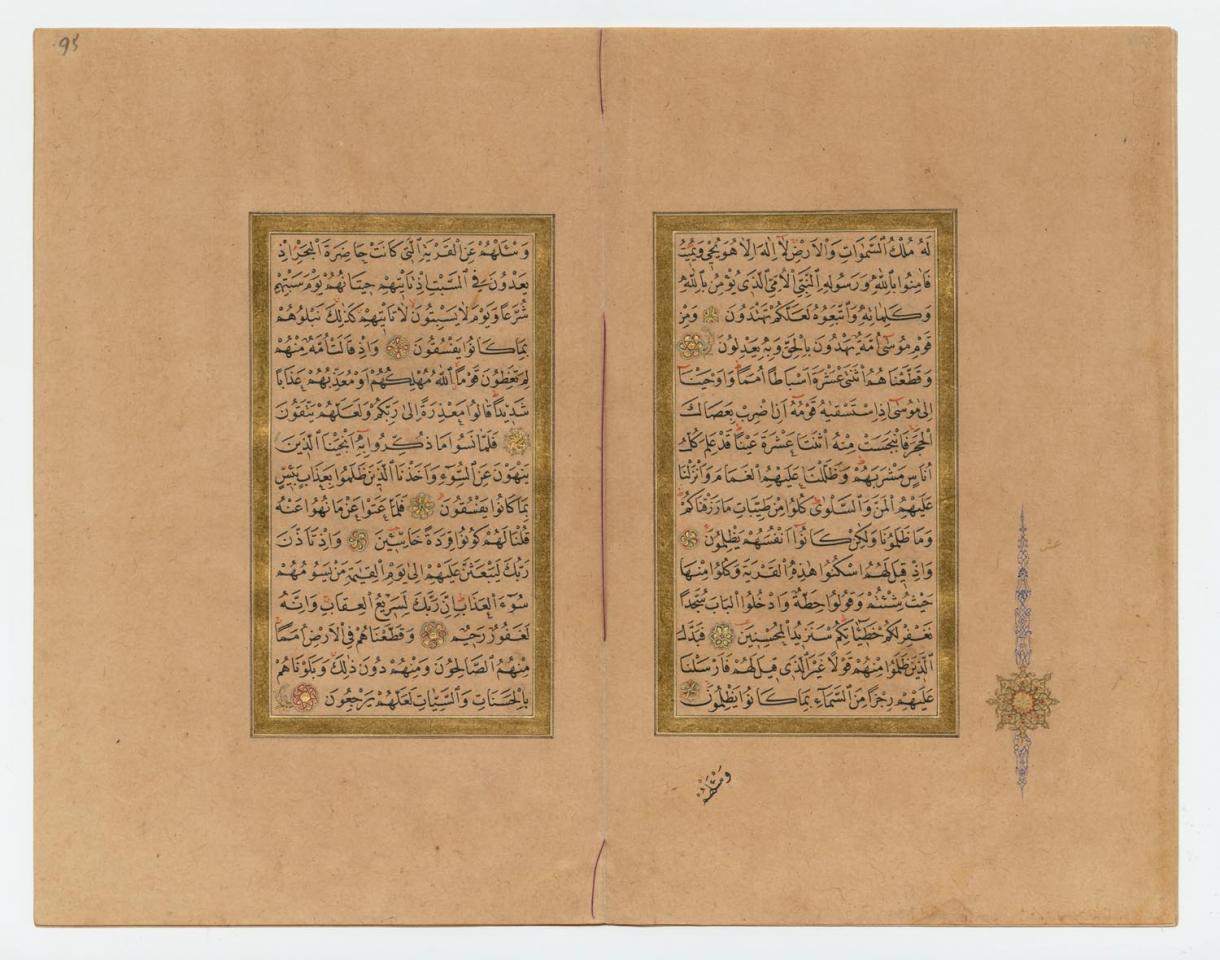 لَهُ مُلْكُ السَّمٰوَاتِ وَالْاَرْضِ لَا اِلٰهَ اِلَّا هُوَ يُحْيِي وَيُمِيتُ
فَاٰمِنُوا بِاللّٰهِ وَرَسُولِهِ النَّبِيِّ الْاُمِّيِّ الَّذِي يُؤْمِنُ بِاللّٰهِ
وَكَلِمَاتِهِ وَاتَّبِعُوهُ لَعَلَّكُمْ تَهْتَدُونَ وَمِنْ
قَوْمِ مُوسٰى اُمَّةٌ يَهْدُونَ بِالْحَقِّ وَبِهِ يَعْدِلُونَ
وَقَطَّعْنَاهُمُ اثْنَتَيْ عَشْرَةَ اَسْبَاطًا اُمَمًا وَاَوْحَيْنَا
اِلٰى مُوسٰى اِذِ اسْتَسْقٰيهُ قَوْمُهُ اَنِ اضْرِبْ بِعَصَاكَ
الْحَجَرَ فَانْبَجَسَتْ مِنْهُ اثْنَتَا عَشْرَةَ عَيْنًا قَدْ عَلِمَ كُلُّ
اُنَاسٍ مَشْرَبَهُمْ وَظَلَّلْنَا عَلَيْهِمُ الْغَمَامَ وَاَنْزَلْنَا
عَلَيْهِمُ الْمَنَّ وَالسَّلْوٰى كُلُوا مِنْ طَيِّبَاتِ مَا رَزَقْنَاكُمْ
وَمَا ظَلَمُونَا وَلٰكِنْ كَانُوا اَنْفُسَهُمْ يَظْلِمُونَ
وَاِذْ قِيلَ لَهُمُ اسْكُنُوا هٰذِهِ الْقَرْيَةَ وَكُلُوا مِنْهَا
حَيْثُ شِئْتُمْ وَقُولُوا حِطَّةٌ وَادْخُلُوا الْبَابَ سُجَّدًا
نَغْفِرْ لَكُمْ خَطِيئَاتِكُمْ سَنَزِيدُ الْمُحْسِنِينَ فَبَدَّلَ
الَّذِينَ ظَلَمُوا مِنْهُمْ قَوْلًا غَيْرَ الَّذِي قِيلَ لَهُمْ فَاَرْسَلْنَا
عَلَيْهِمْ رِجْزًا مِنَ السَّمَاءِ بِمَا كَانُوا يَظْلِمُونَ
وَسْئَلْهُمْ
وَسْئَلْهُمْ عَنِ الْقَرْيَةِ الَّتِي كَانَتْ حَاضِرَةَ الْبَحْرِ اِذْ
يَعْدُونَ فِي السَّبْتِ اِذْ تَأْتِيهِمْ حِيتَانُهُمْ يَوْمَ سَبْتِهِمْ
شُرَّعًا وَيَوْمَ لَا يَسْبِتُونَ لَا تَأْتِيهِمْ كَذٰلِكَ نَبْلُوهُمْ
بِمَا كَانُوا يَفْسُقُونَ وَاِذْ قَالَتْ اُمَّةٌ مِنْهُمْ
لِمَ تَعِظُونَ قَوْمًا اللّٰهُ مُهْلِكُهُمْ اَوْ مُعَذِّبُهُمْ عَذَابًا
شَدِيدًا قَالُوا مَعْذِرَةً اِلٰى رَبِّكُمْ وَلَعَلَّهُمْ يَتَّقُونَ
فَلَمَّا نَسُوا مَا ذُكِّرُوا بِهِ اَنْجَيْنَا الَّذِينَ
يَنْهَوْنَ عَنِ السُّوءِ وَاَخَذْنَا الَّذِينَ ظَلَمُوا بِعَذَابٍ بَئِيسٍ
بِمَا كَانُوا يَفْسُقُونَ فَلَمَّا عَتَوْا عَنْ مَا نُهُوا عَنْهُ
قُلْنَا لَهُمْ كُونُوا قِرَدَةً خَاسِئِينَ وَاِذْ تَاَذَّنَ
رَبُّكَ لَيَبْعَثَنَّ عَلَيْهِمْ اِلٰى يَوْمِ الْقِيٰمَةِ مَنْ يَسُومُهُمْ
سُوءَ الْعَذَابِ اِنَّ رَبَّكَ لَسَرِيعُ الْعِقَابِ وَاِنَّهُ
لَغَفُورٌ رَحِيمٌ وَقَطَّعْنَاهُمْ فِي الْاَرْضِ اُمَمًا
مِنْهُمُ الصَّالِحُونَ وَمِنْهُمْ دُونَ ذٰلِكَ وَبَلَوْنَاهُمْ
بِالْحَسَنَاتِ وَالسَّيِّئَاتِ لَعَلَّهُمْ يَرْجِعُونَ